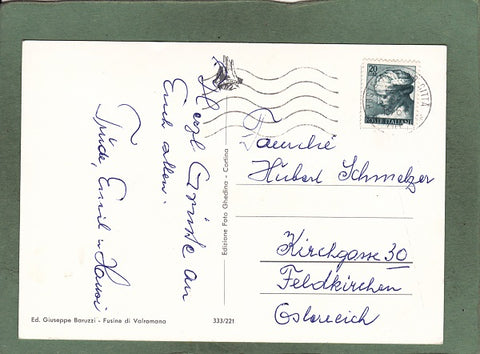 Herzl. Grüße an
Euch allen.
Trude, Emil u. Hansi
Ed. Giuseppe Baruzzi - Fusine di Valromana
333/221
Edizione Foto Ghedina - Cortina
20
POSTE ITALIANE
CITTA
Familie
Hubert Schmelzer
Kirchgasse 30
Feldkirchen
Österreich